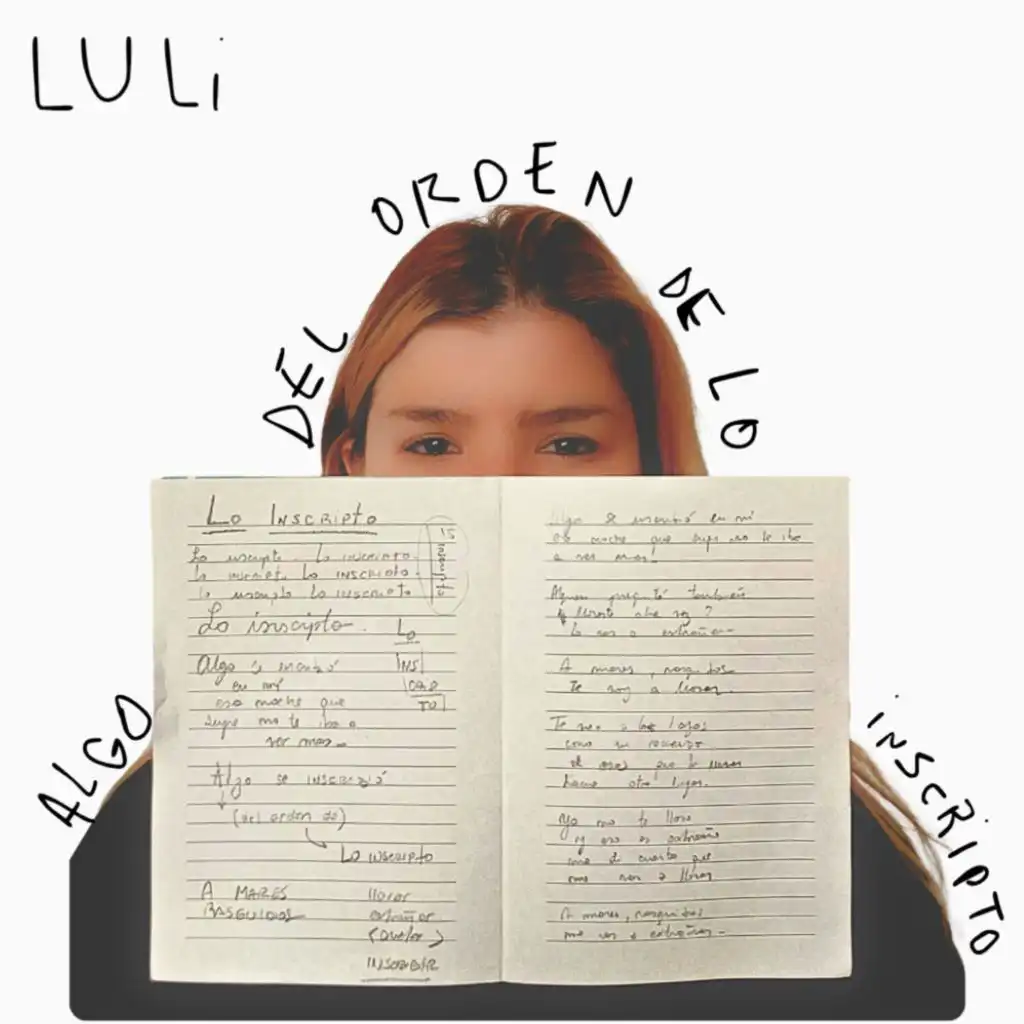 LULi
ALGO DEL ORDEN DE LO iNSCRiPTO
Lo INSCRIPTO
Lo inscripto. Lo INSCRIPTO.
Lo INSCRIPTO.
Lo inscripto Lo INSCRIPTO
Lo inscripto.
Lo
INS
CRIP
TO
Lo inscripto
Algo se
en mí
esa noche que
supe no te iba a
ver mas
Algo se INSCRIBIÓ
(del orden de)
Lo INSCRIPTO
A MARES
RASGUIDOS
llorar
extrañar
(Duelar)
INSCRIBIR
Algo se en mí
esa noche que supe no te iba
a ver mas.
también
?
te vas a extrañar
A mares,
Te voy a llorar.
Te veo a lo lejos
como un recuerdo
que
hacia otro lugar.
Yo no te lloro
y eso es extraño
que
me vas a llorar
A mares,
me vas a extrañar.